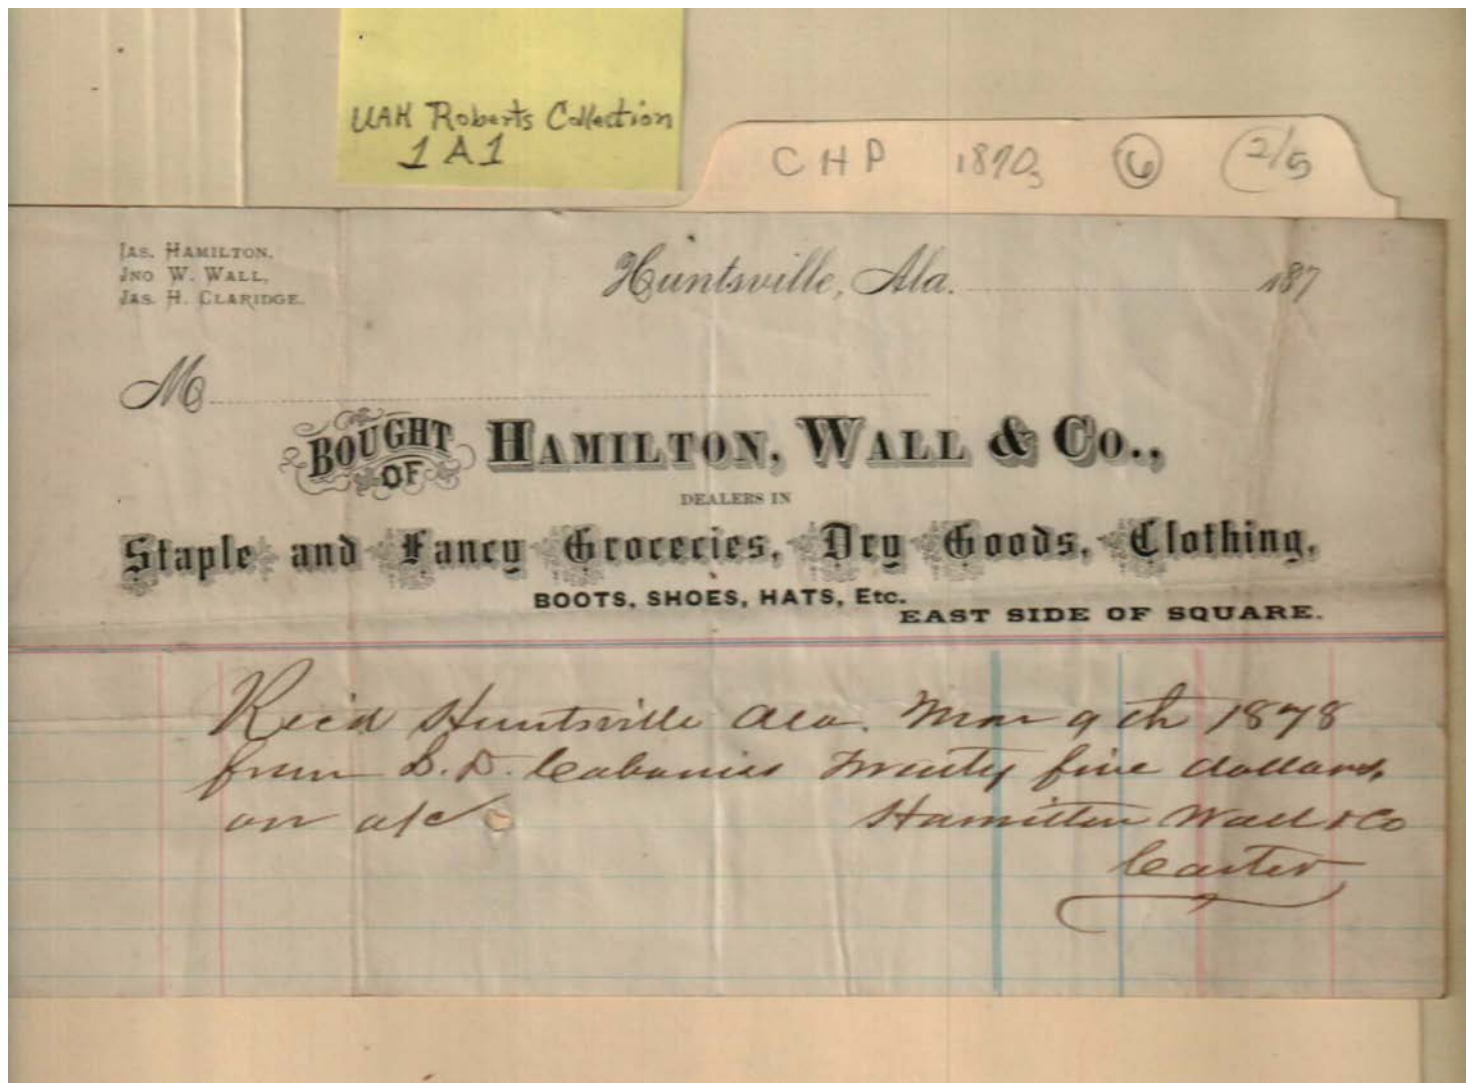 UAH Roberts Collection
1A1
CHP 1870s 6 2/5
JAS. HAMILTON,
JNO W. WALL,
JAS. H. CLARIDGE.
Huntsville, Ala. 187
M
BOUGHT OF HAMILTON, WALL & CO.,
DEALERS IN
Staple and Fancy Groceries, Dry Goods, Clothing,
BOOTS, SHOES, HATS, Etc.
EAST SIDE OF SQUARE.
Rec'd Huntsville Ala. Mar 9th 1878
from S. D. Cabaniss Twenty five dollars,
on a/c Hamilton Wall & Co
Carter